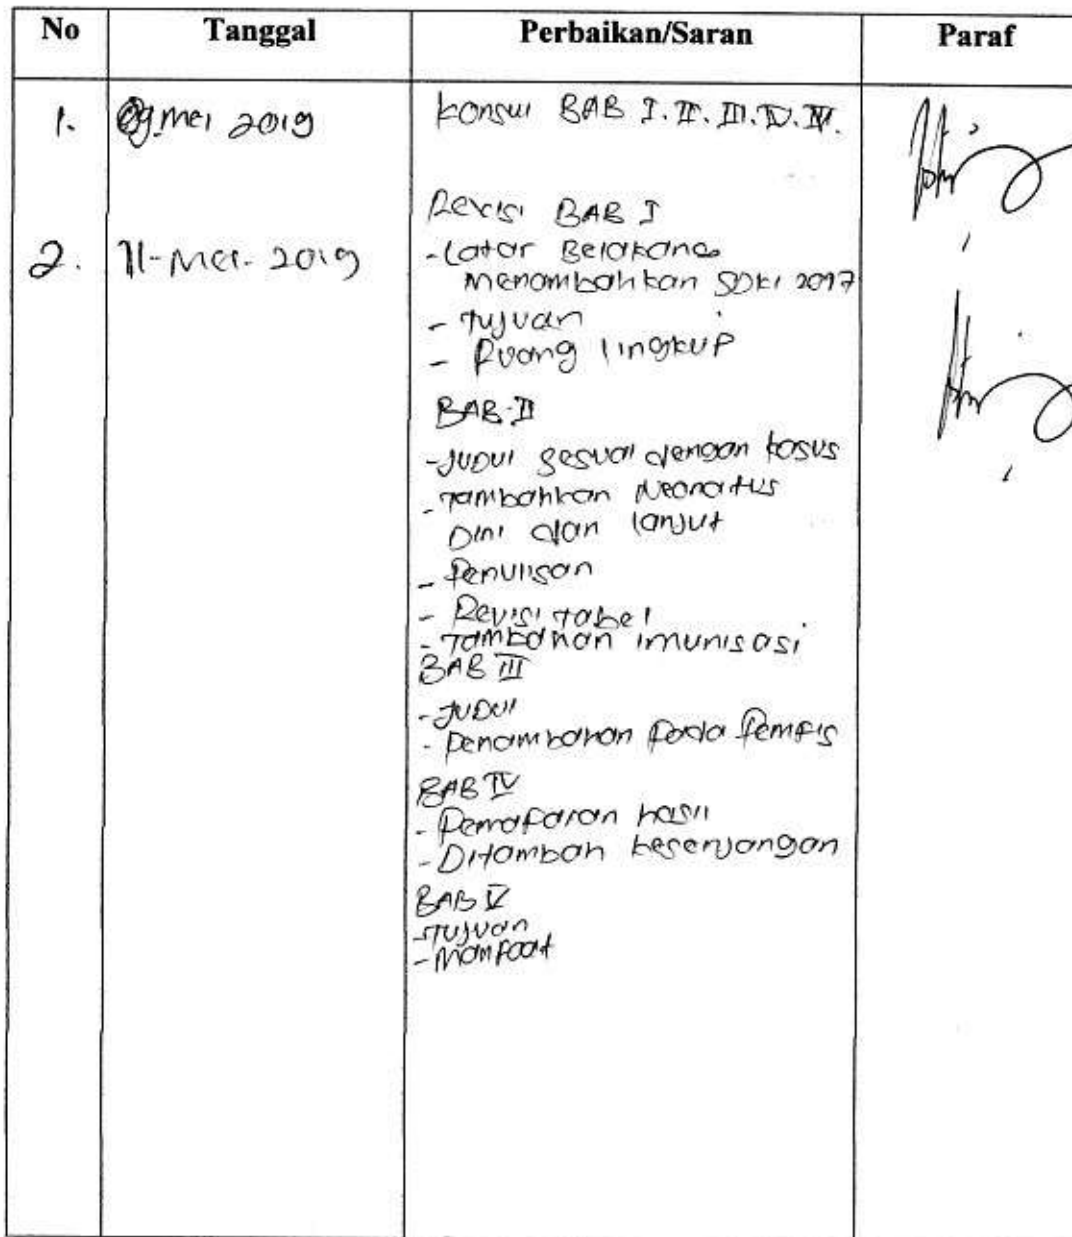 No Tanggal Perbaikan/Saran Paraf
1. 09 mei 2019 konsul BAB I. II. III. IV. IV.
Revisi BAB I
2. 11-Mei-2019 - Latar Belakang
Menambahkan SDKI 2017
- Tujuan
- Ruang lingkup
BAB II
- Judul sesuai dengan kasus
- Tambahkan Neonatus
Dini dan lanjut
- Penulisan
- Revisi tabel
- Tambahan imunisasi
BAB III
- Judul
- Penambahan pada Pemfis
BAB IV
- Pemaparan hasil
- Ditambah kesenjangan
BAB V
- Tujuan
- Manfaat